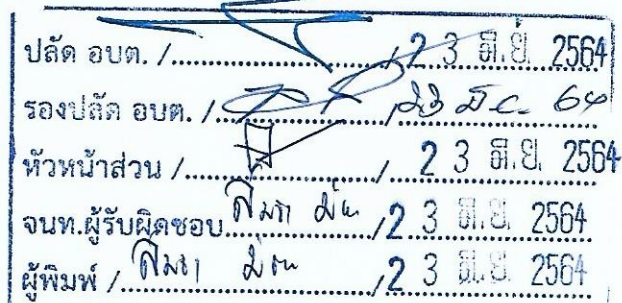 ปลัด อบต. /............/ 2 3 มิ.ย. 2564
รองปลัด อบต. /............/ 23 มิ.ย. 64
หัวหน้าส่วน /............/ 2 3 มิ.ย. 2564
จนท.ผู้รับผิดชอบ............/ 2 3 มิ.ย. 2564
ผู้พิมพ์ /............/ 2 3 มิ.ย. 2564